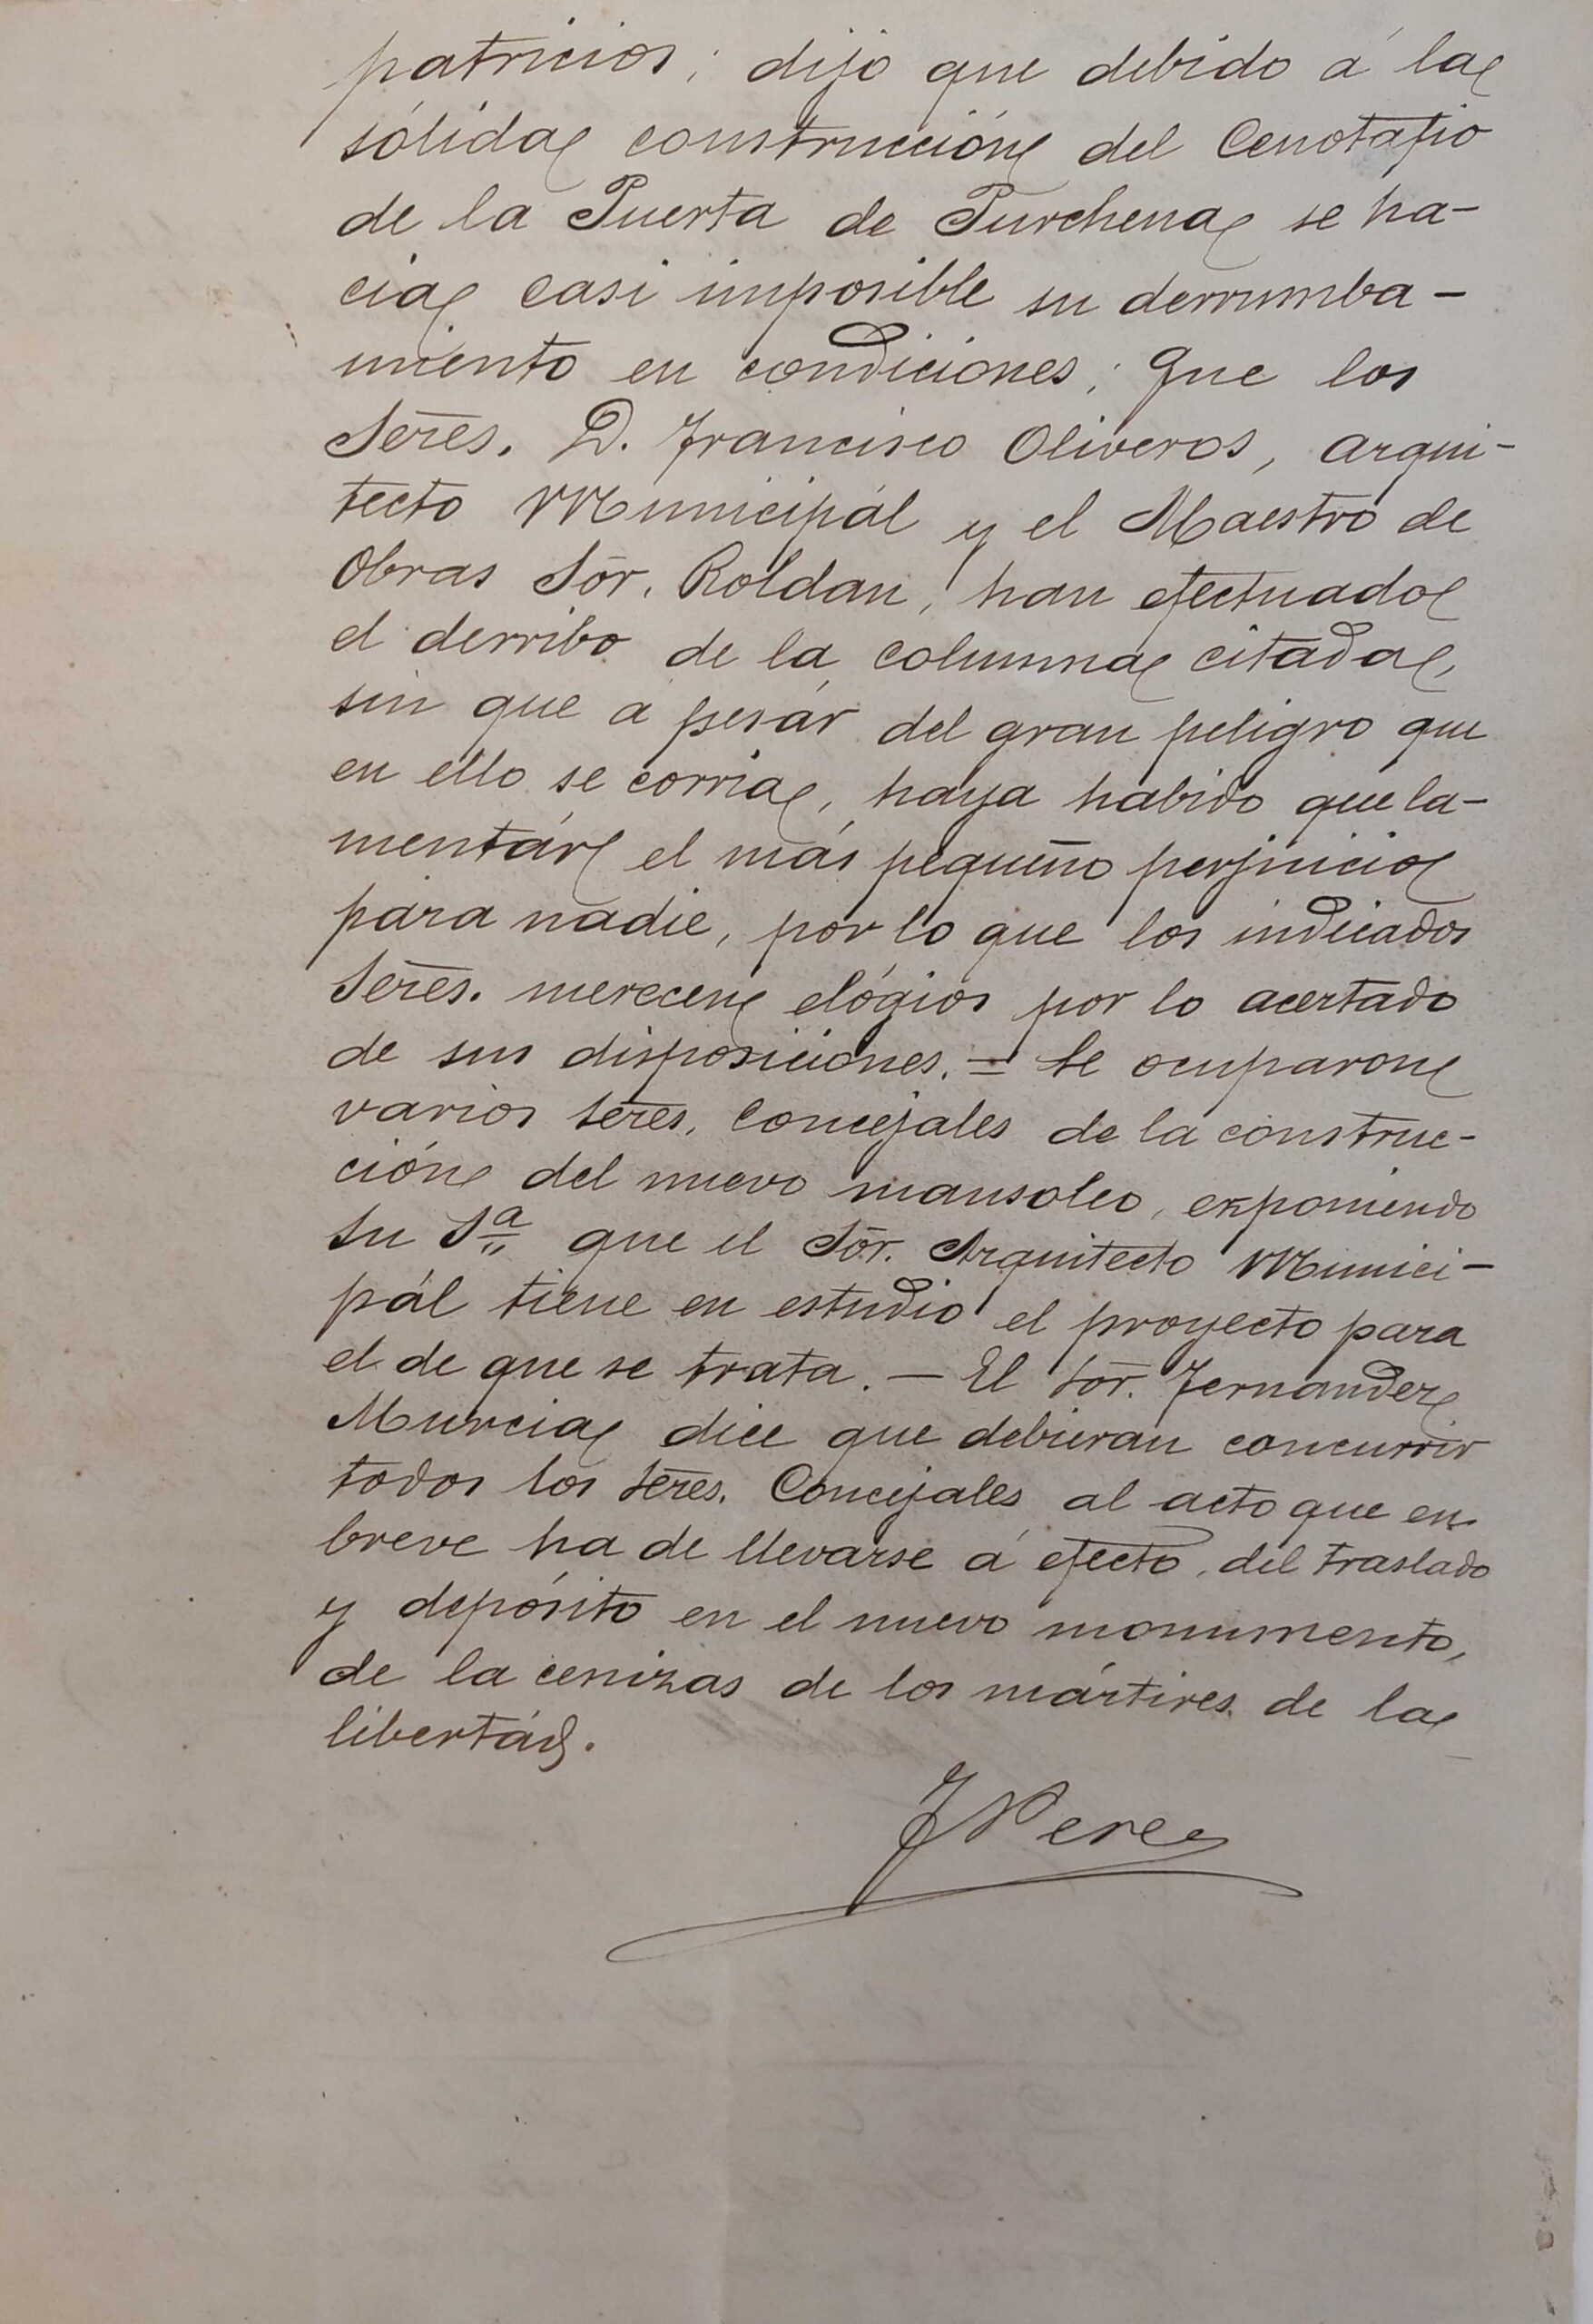 patricios; dijo que debido á la
sólida construcción del Cenotafio
de la Puerta de Purchena se ha-
cia casi imposible su derrumba-
miento en condiciones; Que los
Señes. D. Francisco Oliveros, arqui-
tecto Municipál y el Maestro de
Obras Sōr. Roldan, han efectuado
el derribo de la columna citada,
sin que á pesár del gran peligro que
en ello se corria, haya habido que la-
mentár el más pequeño perjuicio
para nadie, por lo que los indicados
Señes. merecen elógios por lo acertado
de sus disposiciones. = Se ocuparon
varios Señes. Concejales de la construc-
ción del nuevo mausoleo, exponiendo
su Sª que el Sōr. Arquitecto Munici-
pál tiene en estudio el proyecto para
el de que se trata. — El Sōr. Fernandez
Murcia dice que debieran concurrir
todos los Señes. Concejales al acto que en
breve ha de llevarse á efecto, del traslado
y depósito en el nuevo monumento,
de la cenizas de los mártires de la
libertád.
J Perez